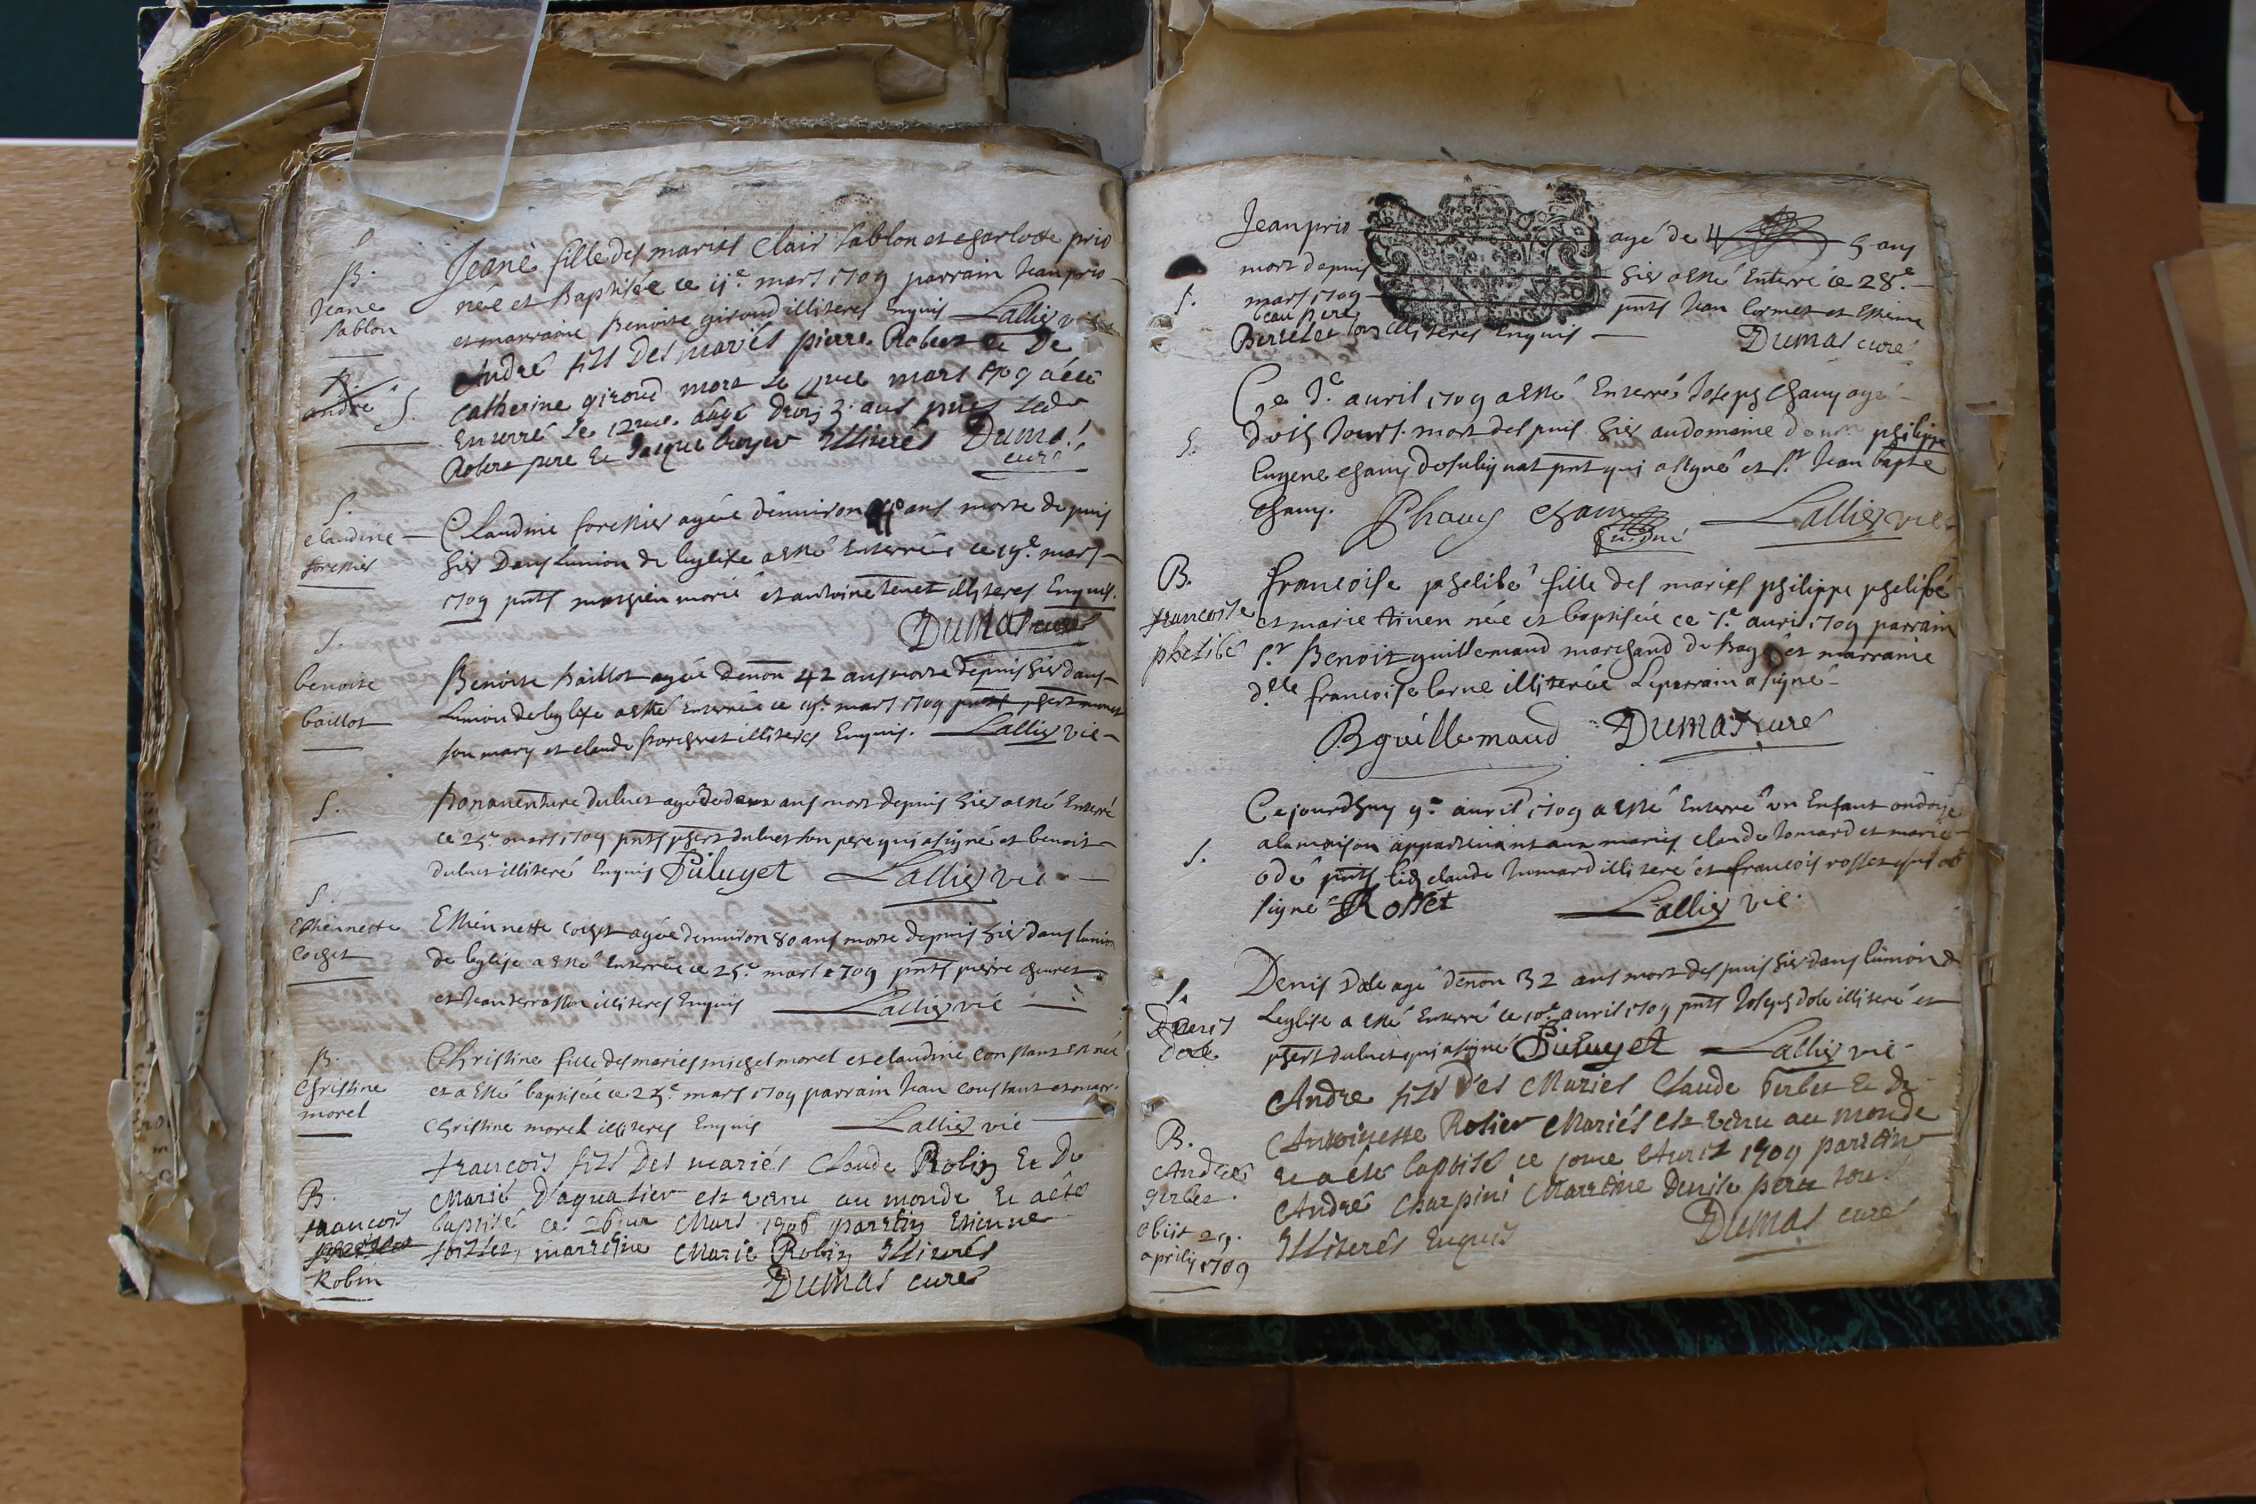 B.
Jeane
Sablon
Jeane fille des mariés Clair Sablon et charlotte prio
née et Baptisée ce 11e mars 1709 parrain Jean prio
et marraine Benoite giroud illiteres Enquis Lallier vic
B.
andré S.
André fils Des mariés pierre Robert et De
Catherine giroud mort le mars 1709 a été
Enterré le 12me. agé 3 ans
Robert pere Et Jaque boyer Illiterés Dumas
curé
S.
claudine
forestier
Claudine forestier agée d'environ ans morte depuis
hier Dans Lunion de leglise a esté Enterrée ce 19e mars
1709 pnts morié et antoine tenet illiteres Enquis.
Dumas curé
S.
benoite
baillot
Benoite baillot agée denon 42 ans morte depuis hier dans
Lunion de leglise a esté Enterrée ce 19e mars 1709 pnts
son mary et claude illiteres Enquis. Lallier vic
S.
Bonaventure duluet agé de deux ans mort depuis hier a esté Enterré
ce 25e mars 1709 pnts phert duluet son pere qui a signé et benoit
duluet illiteré Enquis Lallier vic
S.
Estiennette
Coget
Estiennette Coget agée denviron 80 ans morte depuis hier dans lunion
de leglise a esté Enterrée ce 25e mars 1709 pnts pierre
et Jean terrasson illiteres Enquis Lallier vic
B.
Christine
morel
Christine fille des mariés michel morel et claudine constant est née
et a esté baptisée ce 25e mars 1709 parrain Jean constant et marr.
Christine morel illiteres Enquis Lallier vic
B.
francois
Robin
francois fils Des mariés Claude Robin Et De
Marie Daguatier est venu au monde Et a été
baptisé ce 26me Mars parrain Etienne
marraine Marie Robin Illiterés
Dumas curé
S.
Jean prio agé de 4 5 ans
mort depuis hier a esté Enterré ce 28e
mars 1709 pnts Jean Cormet et Estiene
beau pere
illiteres Enquis Dumas curé
S.
Ce 5e avril 1709 a esté Enterré Joseph Chany agé
Jours. mort despuis hier au domaine philippe
Eugene chany pnt qui a signé et Sr Jean bapte
chany. Phany chany Lallier vic
B.
francoise
phelibé
francoise phelibé fille des mariés philippe phelibé
et marie née et baptisée ce 7e avril 1709 parrain
Sr Benoit guillemaud marchand de bagé et marraine
delle francoise larue illiterée Le parrain a signé
Bguillemaud Dumas curé
S.
Cejourdhuy 9e avril 1709 a esté Enterré un Enfant ondoyé
a la maison appartenant aux mariés claude Jomard et marie
odé pnts led claude Jomard illiteré et francois rosset qui a
signé Rosset Lallier vic.
S.
Denis
dole
Denis Dole agé denon 32 ans mort despuis hier dans lunion de
Leglise a esté Enterré ce 10e avril 1709 pnts Joseph dole illiteré et
phert duluet qui a signé Lallier vic
B.
André
gerbet.
obiit 29.
aprilis 1709
Andre fils Des Mariés Claude Gerbet Et De
Antoinette Rosier Mariés est venu au monde
Et a été baptisé ce 10me Avril 1709 parrain
André Charpini Marraine Denise
Illiterés Enquis Dumas curé